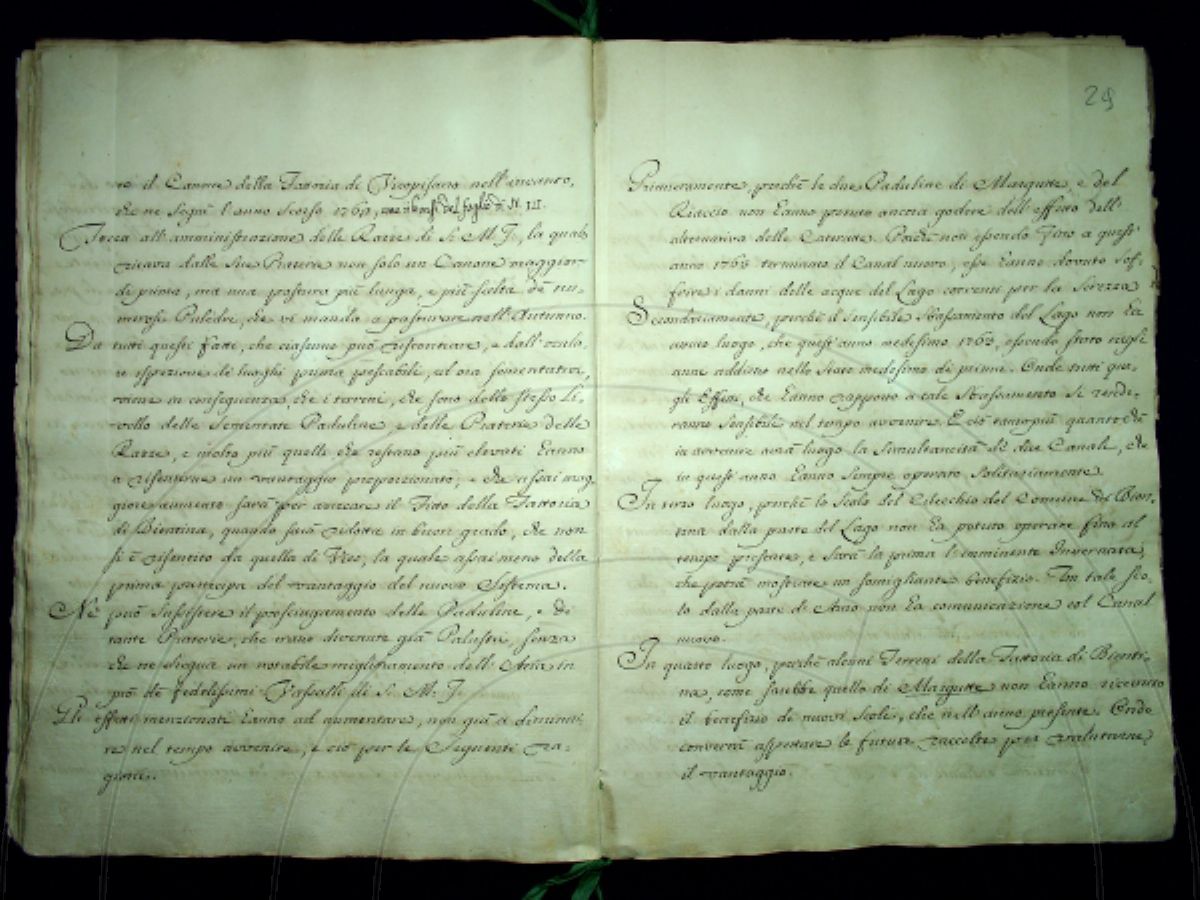 re il Canone della Fattoria di Vicopisano nell'incanto,
che ne seguì l'anno scorso 1762, del foglio di N. III.
Tocca all'amministrazione delle Razze di S. M. I., la quale
ricava dalle sue Praterie non solo un Canone maggior
di prima, ma una pastura più lunga, e più scelta de nu-
merosi Puledri, che vi manda a pasturare nell'Autunno.
Da tutti questi fatti, che ciascuno può riscontrare, e dall'ocula-
re ispezione de luoghi prima pescabili, ed ora sementati,
viene in conseguenza, che i terreni, che sono dello stesso Li-
vello delle Sementate Paduline e delle Praterie delle
Razze, e molto più quelli che restano più elevati hanno
a risentirne un vantaggio proporzionato; e che assai mag-
giore aumento sarà per arrecare il Fitto della Fattoria
di Bientina, quando sarà ridotta in buon grado, che non
si è risentito da quella di Vico, la quale assai meno della
prima partecipa del vantaggio del nuovo Sistema.
Nè può sussistere il prosciugamento delle Paduline, e di
tante Praterie, che erano divenute già Palustri, senza
che ne segua un notabile miglioramento dell'Aria in
prò de fedelissimi Vassalli di S. M. I.
Gli effetti menzionati hanno ad aumentare, non già a diminui-
re nel tempo avvenire, e ciò per le seguenti ra-
gioni.
29
Primieramente, perchè le due Paduline di Margutte, e del
Riaccio non hanno potuto ancora godere dell'effetto dell'
alternativa delle Cateratte. Poichè non essendo fino a quest'
anno 1763 terminato il Canal nuovo, esse hanno dovuto sof-
frire i danni delle acque del Lago correnti per la Serezza
Secondariamente, perchè il sensibile Abbassamento del Lago non ha
avuto luogo, che quest'anno medesimo 1763, essendo stato negli
anni addietro nello stato medesimo di prima. Onde tutti que-
gli Effetti, che hanno rapporto a tale Abbassamento si rende-
ranno sensibili nel tempo avvenire. E ciò tantopiù quanto che
in avvenire avrà luogo la simultaneità de due Canali, che
in quest'anno hanno sempre operato solitariamente.
In terzo luogo, perchè lo Scolo del Cilecchio del Comune di Bien-
tina dalla parte del Lago non ha potuto operare fino al
tempo presente, e sarà la prima l'imminente Invernata,
che potrà mostrare un somigliante benefizio. Un tale Sco-
lo dalla parte di Arno non ha comunicazione col Canal
nuovo.
In quarto luogo, perchè alcuni Terreni della Fattoria di Bienti-
na, come sarebbe quello di Margutte non hanno ricevuto
il benefizio di nuovi Scoli, che nell'anno presente. Onde
converrà aspettare le future raccolte per valutarne
il vantaggio.